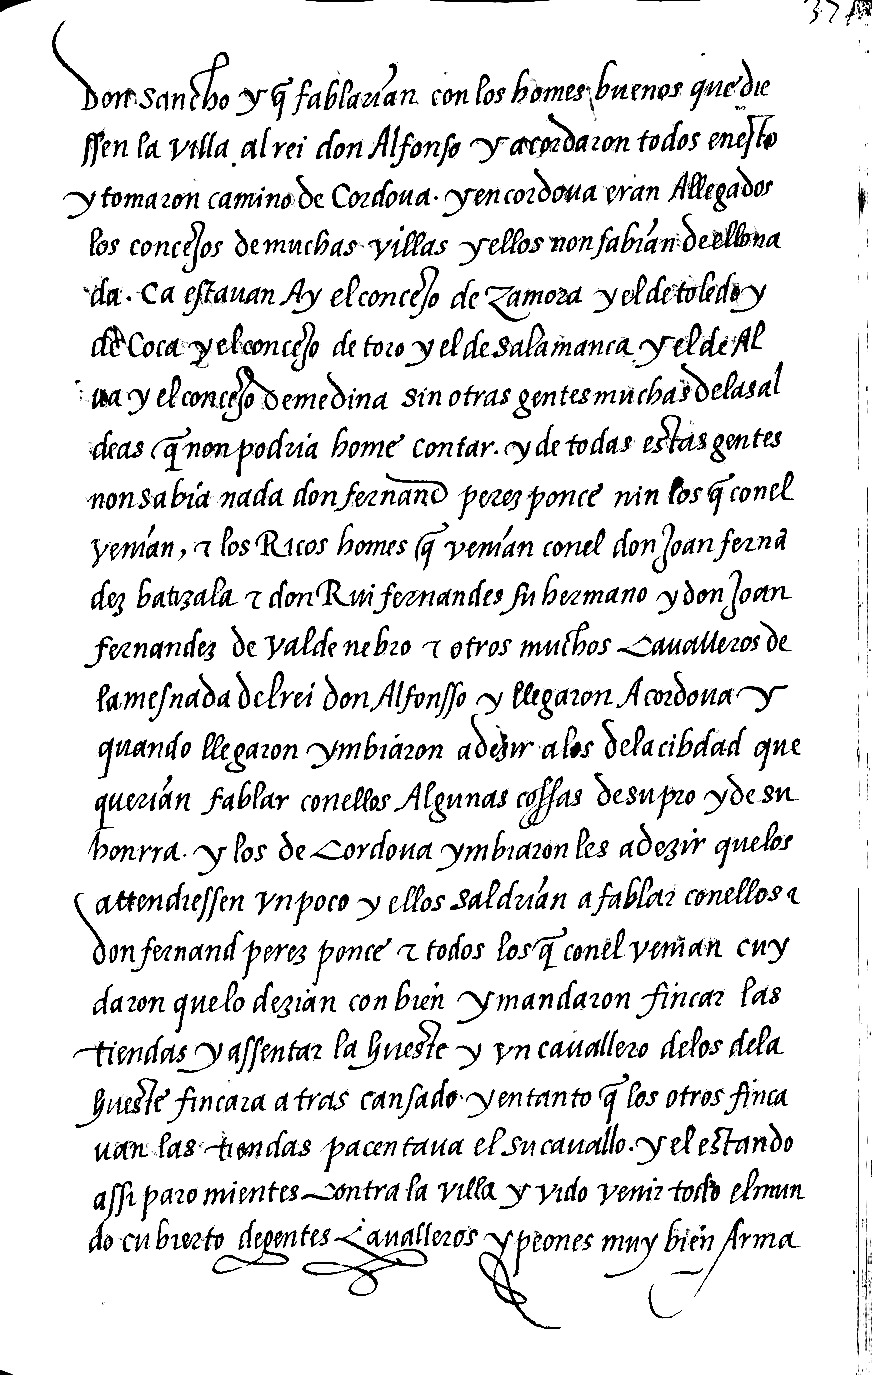 Don Sancho y q̃ fablarian con los homes buenos que die
ssen la villa al rei don Alfonso y acordaron todos en esto
y tomaron camino de Cordoua. y en cordoua eran Allegados
los concejos de muchas villas y ellos non sabian de ello na
da. Ca estauan Ay el concejo de Zamora y el de toledo y
de Coca y el concejo de toro y el de salamanca y el de Al
ua y el concejo de medina sin otras gentes muchas de las al
deas q̃ non podria home contar. y de todas estas gentes
non sabia nada don fernand perez ponce nin los q̃ con el
venian, ⁊ los Ricos homes q̃ venian con el don Joan fernã
dez batizala ⁊ don Rui fernandes su hermano y don Joan
fernandez de valde nebro ⁊ otros muchos Caualleros de
la mesnada del rei don Alfonsso y llegaron A cordoua y
quando llegaron ymbiaron a dezir a los de la cibdad que
querian fablar con ellos Algunas cossas de su pro y de su
honrra. y los de Cordoua ymbiaron les a dezir que los
attendiessen vn poco y ellos saldrian a fablar con ellos ⁊
don fernand perez ponce ⁊ todos los q̃ con el venian cuy
daron que lo dezian con bien y mandaron fincar las
tiendas y assentar la hueste y vn cauallero de los de la
hueste fincara atras cansado y en tanto q̃ los otros finca
uan las tiendas pacentaua el su cauallo. y el estando
assi paro mientes Contra la villa y vido venir todo el mun
do cubierto de gentes Caualleros y peones muy bien Arma